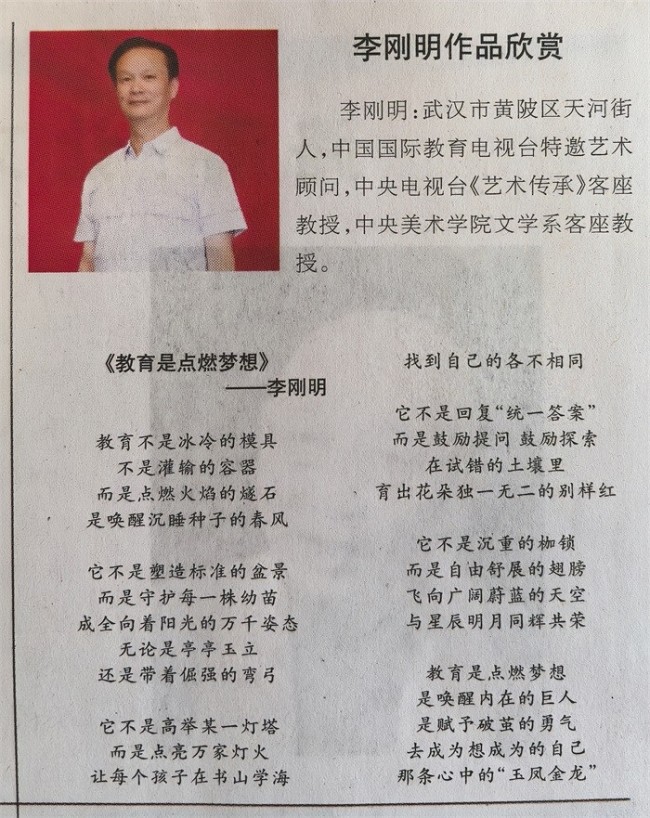 李刚明作品欣赏
李刚明：武汉市黄陂区天河街
人，中国国际教育电视台特邀艺术
顾问，中央电视台《艺术传承》客座
教授，中央美术学院文学系客座教
授。
《教育是点燃梦想》
——李刚明
教育不是冰冷的模具
不是灌输的容器
而是点燃火焰的燧石
是唤醒沉睡种子的春风
它不是塑造标准的盆景
而是守护每一株幼苗
成全向着阳光的万千姿态
无论是亭亭玉立
还是带着倔强的弯弓
它不是高举某一灯塔
而是点亮万家灯火
让每个孩子在书山学海
找到自己的各不相同
它不是回复“统一答案”
而是鼓励提问 鼓励探索
在试错的土壤里
育出花朵独一无二的别样红
它不是沉重的枷锁
而是自由舒展的翅膀
飞向广阔蔚蓝的天空
与星辰明月同辉共荣
教育是点燃梦想
是唤醒内在的巨人
是赋予破茧的勇气
去成为想成为的自己
那条心中的“玉凤金龙”